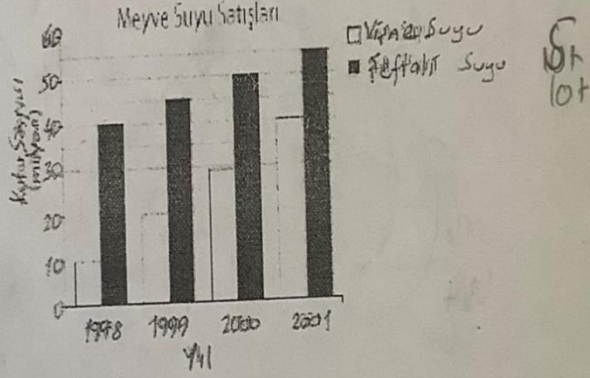 Meyve Suyu Satışları
Vişne Suyu
Şeftali Suyu
Kutu Sayısı
(milyon)
60
50
40
30
20
10
0
1998 1999 2000 2001
Yıl